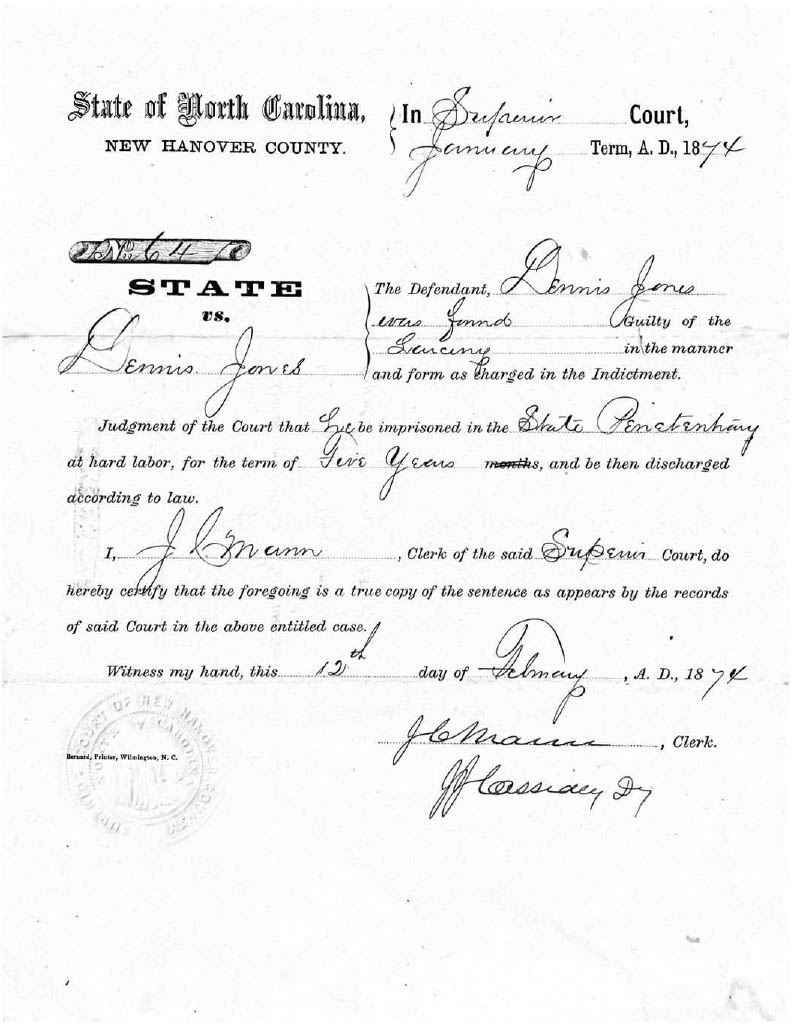 State of North Carolina, In Superior Court,
NEW HANOVER COUNTY. January Term, A. D., 1874
No. 64
STATE
vs.
Dennis Jones
The Defendant, Dennis Jones
was found Guilty of the
Larceny in the manner
and form as charged in the Indictment.
Judgment of the Court that he be imprisoned in the State Penetentiary
at hard labor, for the term of Five Years months, and be then discharged
according to law.
I, J C Mann, Clerk of the said Superior Court, do
hereby certify that the foregoing is a true copy of the sentence as appears by the records
of said Court in the above entitled case.
Witness my hand, this 12th day of February, A. D., 1874
J C Mann, Clerk.
Cassidey Dy
Bernard, Printer, Wilmington, N. C.
COURT OF NEW HANOVER COUNTY